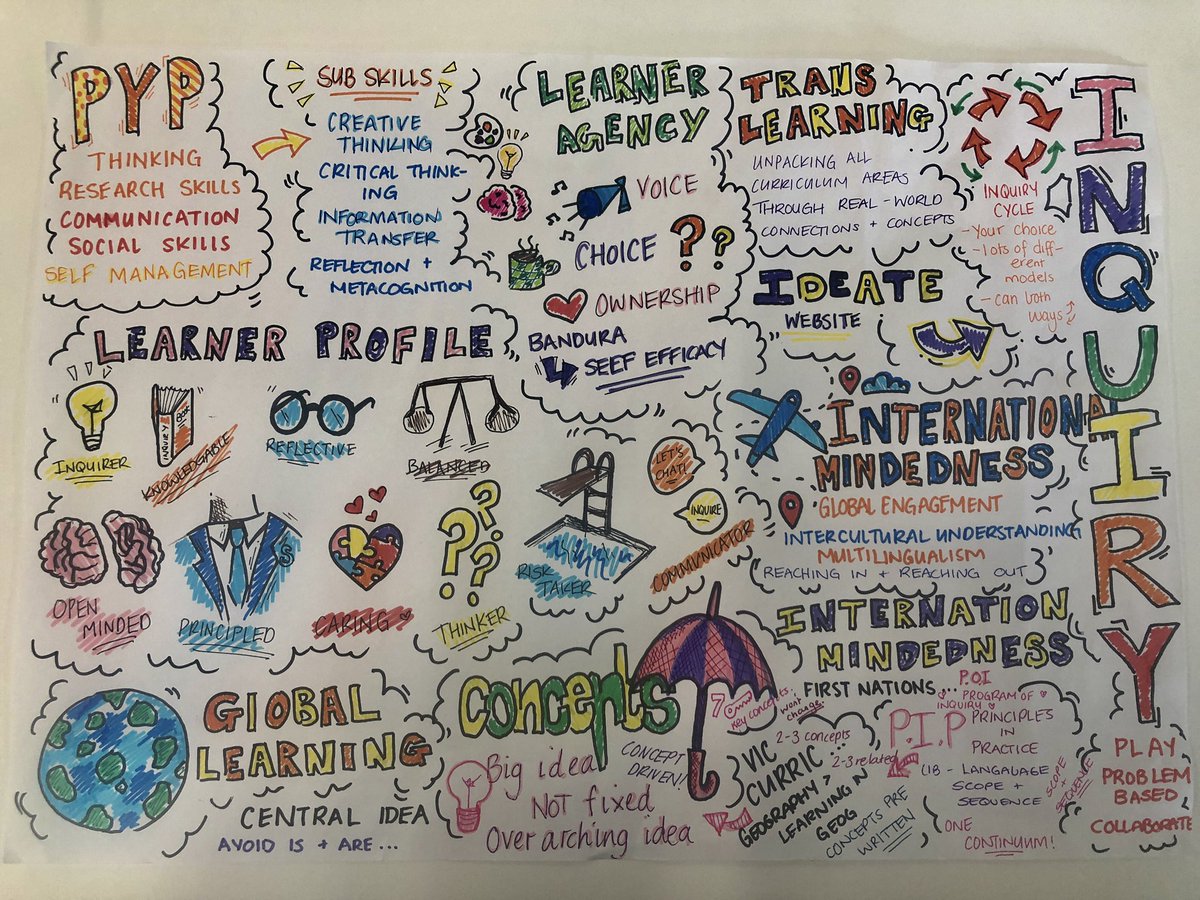 PYP
THINKING
RESEARCH SKILLS
COMMUNICATION
SOCIAL SKILLS
SELF MANAGEMENT
SUB SKILLS
CREATIVE
THINKING
CRITICAL THINK-
ING
INFORMATION
TRANSFER
REFLECTION +
METACOGNITION
LEARNER
AGENCY
VOICE
CHOICE
??
OWNERSHIP
BANDURA
SEEF EFFICACY
TRANS
LEARNING
UNPACKING ALL
CURRICULUM AREAS
THROUGH REAL-WORLD
CONNECTIONS + CONCEPTS
INQUIRY
CYCLE
- Your choice
- lots of diff-
erent
models
- can both
ways
INQUIRY
IDEATE
WEBSITE
LEARNER PROFILE
INQUIRER
INQUIRY
BOOK
KNOWLEDGABLE
REFLECTIVE
BALANCED
OPEN
MINDED
PRINCIPLED
CARING
???
THINKER
RISK
TAKER
LET'S
CHAT!
INQUIRE
COMMUNICATOR
INTERNATIONAL
MINDEDNESS
GLOBAL ENGAGEMENT
INTERCULTURAL UNDERSTANDING
MULTILINGUALISM
REACHING IN + REACHING OUT
INTERNATION
MINDEDNESS
FIRST NATIONS...
GLOBAL
LEARNING
CENTRAL IDEA
AVOID IS + ARE...
Concepts
Big idea
NOT fixed
Over arching idea
CONCEPT
DRIVEN!
7
key concepts
wont
change
2-3 concepts
2-3 related
VIC
CURRIC
GEOGRAPHY ?
LEARNING IN
GEOG
CONCEPTS PRE
WRITTEN
P.O.I
PROGRAM OF
INQUIRY
P.I.P PRINCIPLES
IN
PRACTICE
(18 - LANGAUAGE
SCOPE +
SEQUENCE
SCOPE
+
SEQUENCE
ONE
CONTINUUM!
PLAY
PROBLEM
BASED
COLLABORATE